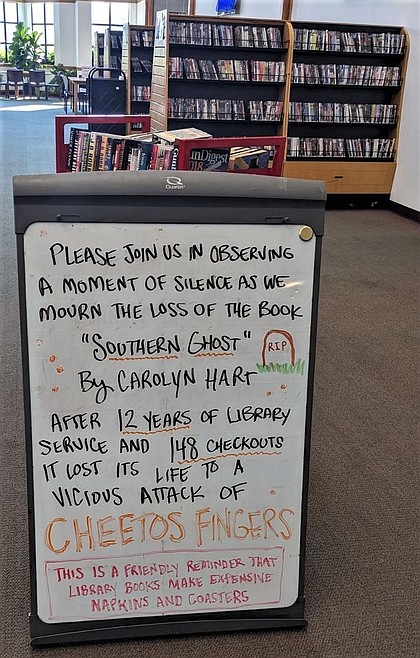 Quartet
inDigest
PLEASE JOIN US IN OBSERVING
A MOMENT OF SILENCE AS WE
MOURN THE LOSS OF THE BOOK
"SOUTHERN GHOST"
RIP
By CAROLYN HART
AFTER 12 YEARS OF LIBRARY
SERVICE AND 148 CHECKOUTS
IT LOST ITS LIFE TO A
VICIOUS ATTACK OF
CHEETOS FINGERS
THIS IS A FRIENDLY REMINDER THAT
LIBRARY BOOKS MAKE EXPENSIVE
NAPKINS AND COASTERS